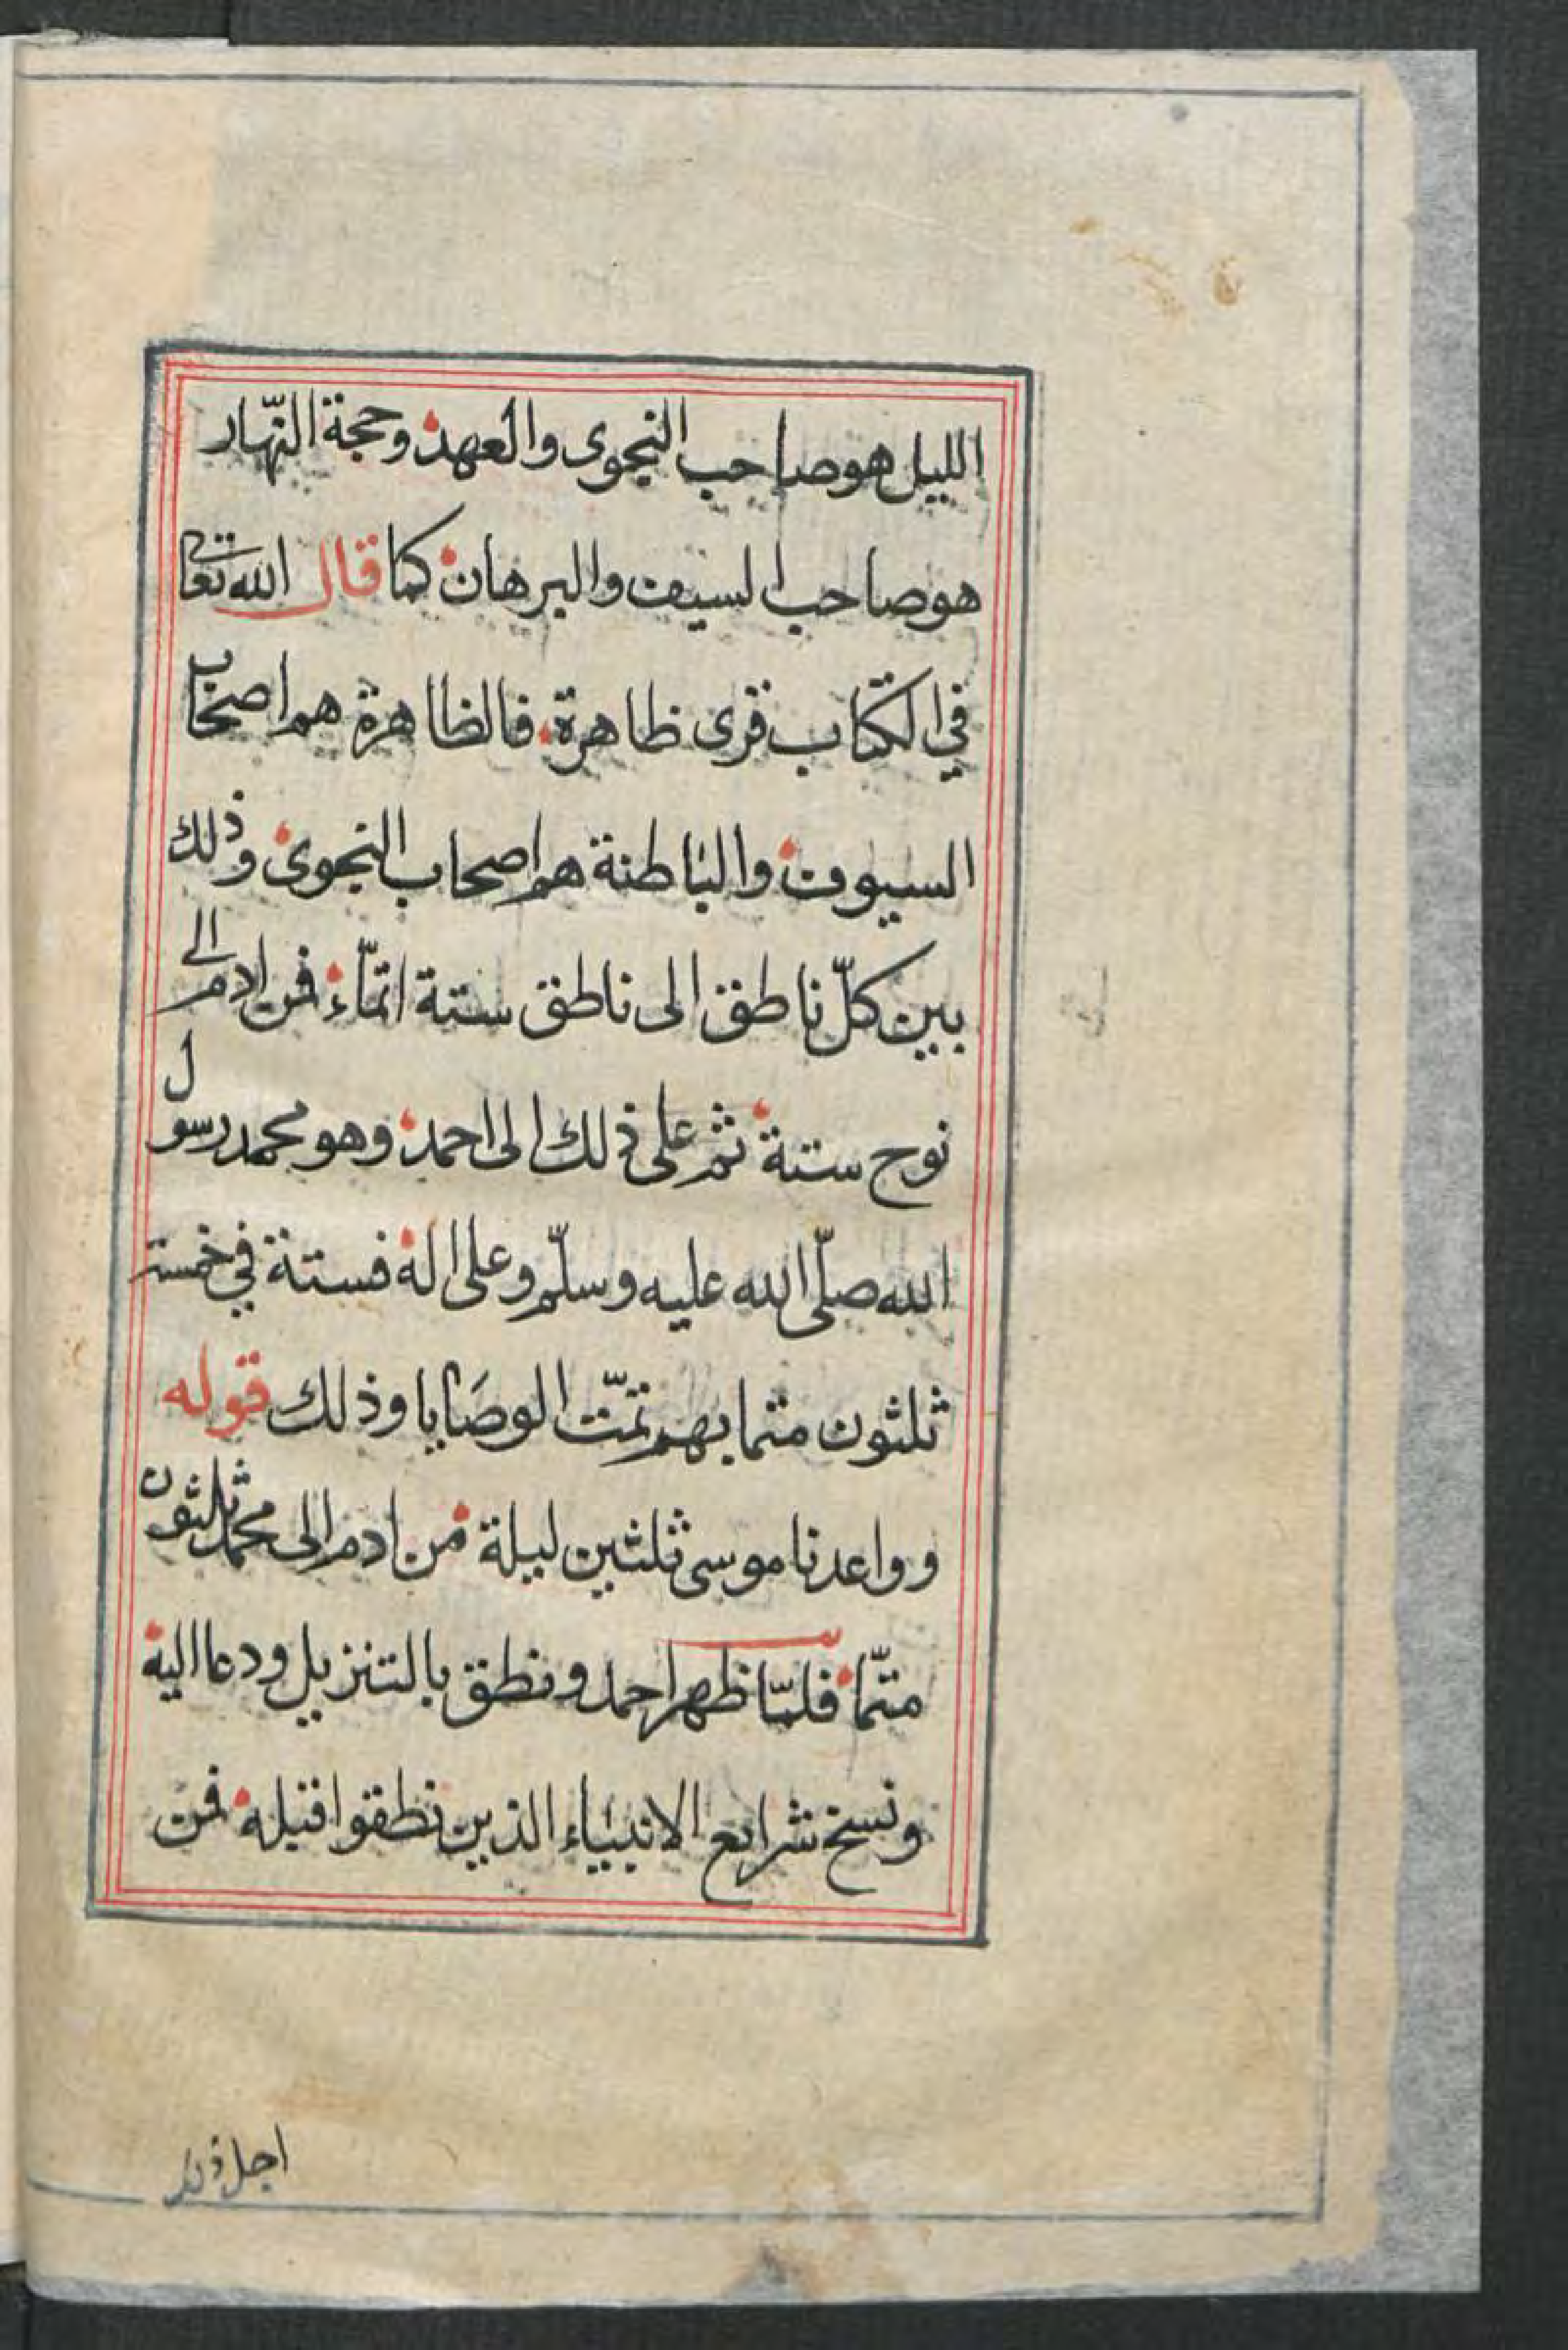 الليل هو صاحب النجوى والعهد وحجة النّهار
هو صاحب السيف والبرهان كما قال الله تعا
في الكتاب قرى ظاهرة فالظاهرة هم اصحاب
السيوف والباطنة هم اصحاب النجوى وذلك
بين كلّ ناطق الى ناطق ستة اتمّاء فمن ادم الى
نوح ستة ثم على ذلك الى احمد وهو محمد رسول
الله صلّى الله عليه وسلّم وعلى اله فستة في خمسة
ثلثون متما بهم تمّت الوصَايا وذلك قوله
وواعدنا موسى ثلثين ليلة من ادم الى محمد ثلثون
متمّا فلمّا ظهر احمد ونطق بالتنزيل ودعا اليه
ونسخ شرايع الانبياء الذين نطقوا قبله فمن
اجل ذلك